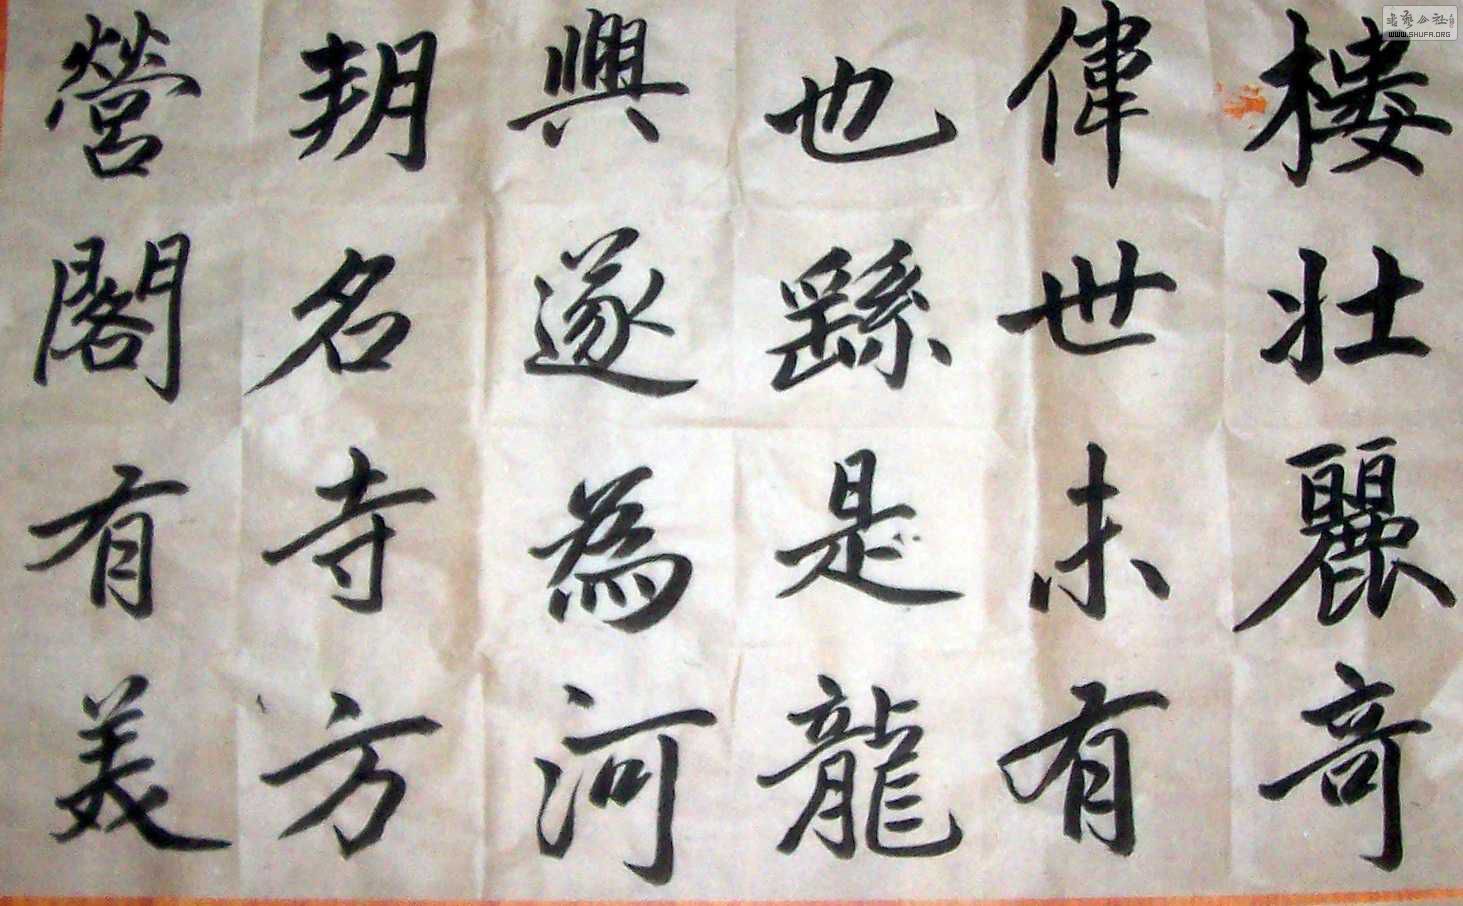 樓壯麗奇
偉世未有
也繇是龍
興遂為河
朔名寺方
營閣有美
書藝公社
WWW.SHUFA.ORG